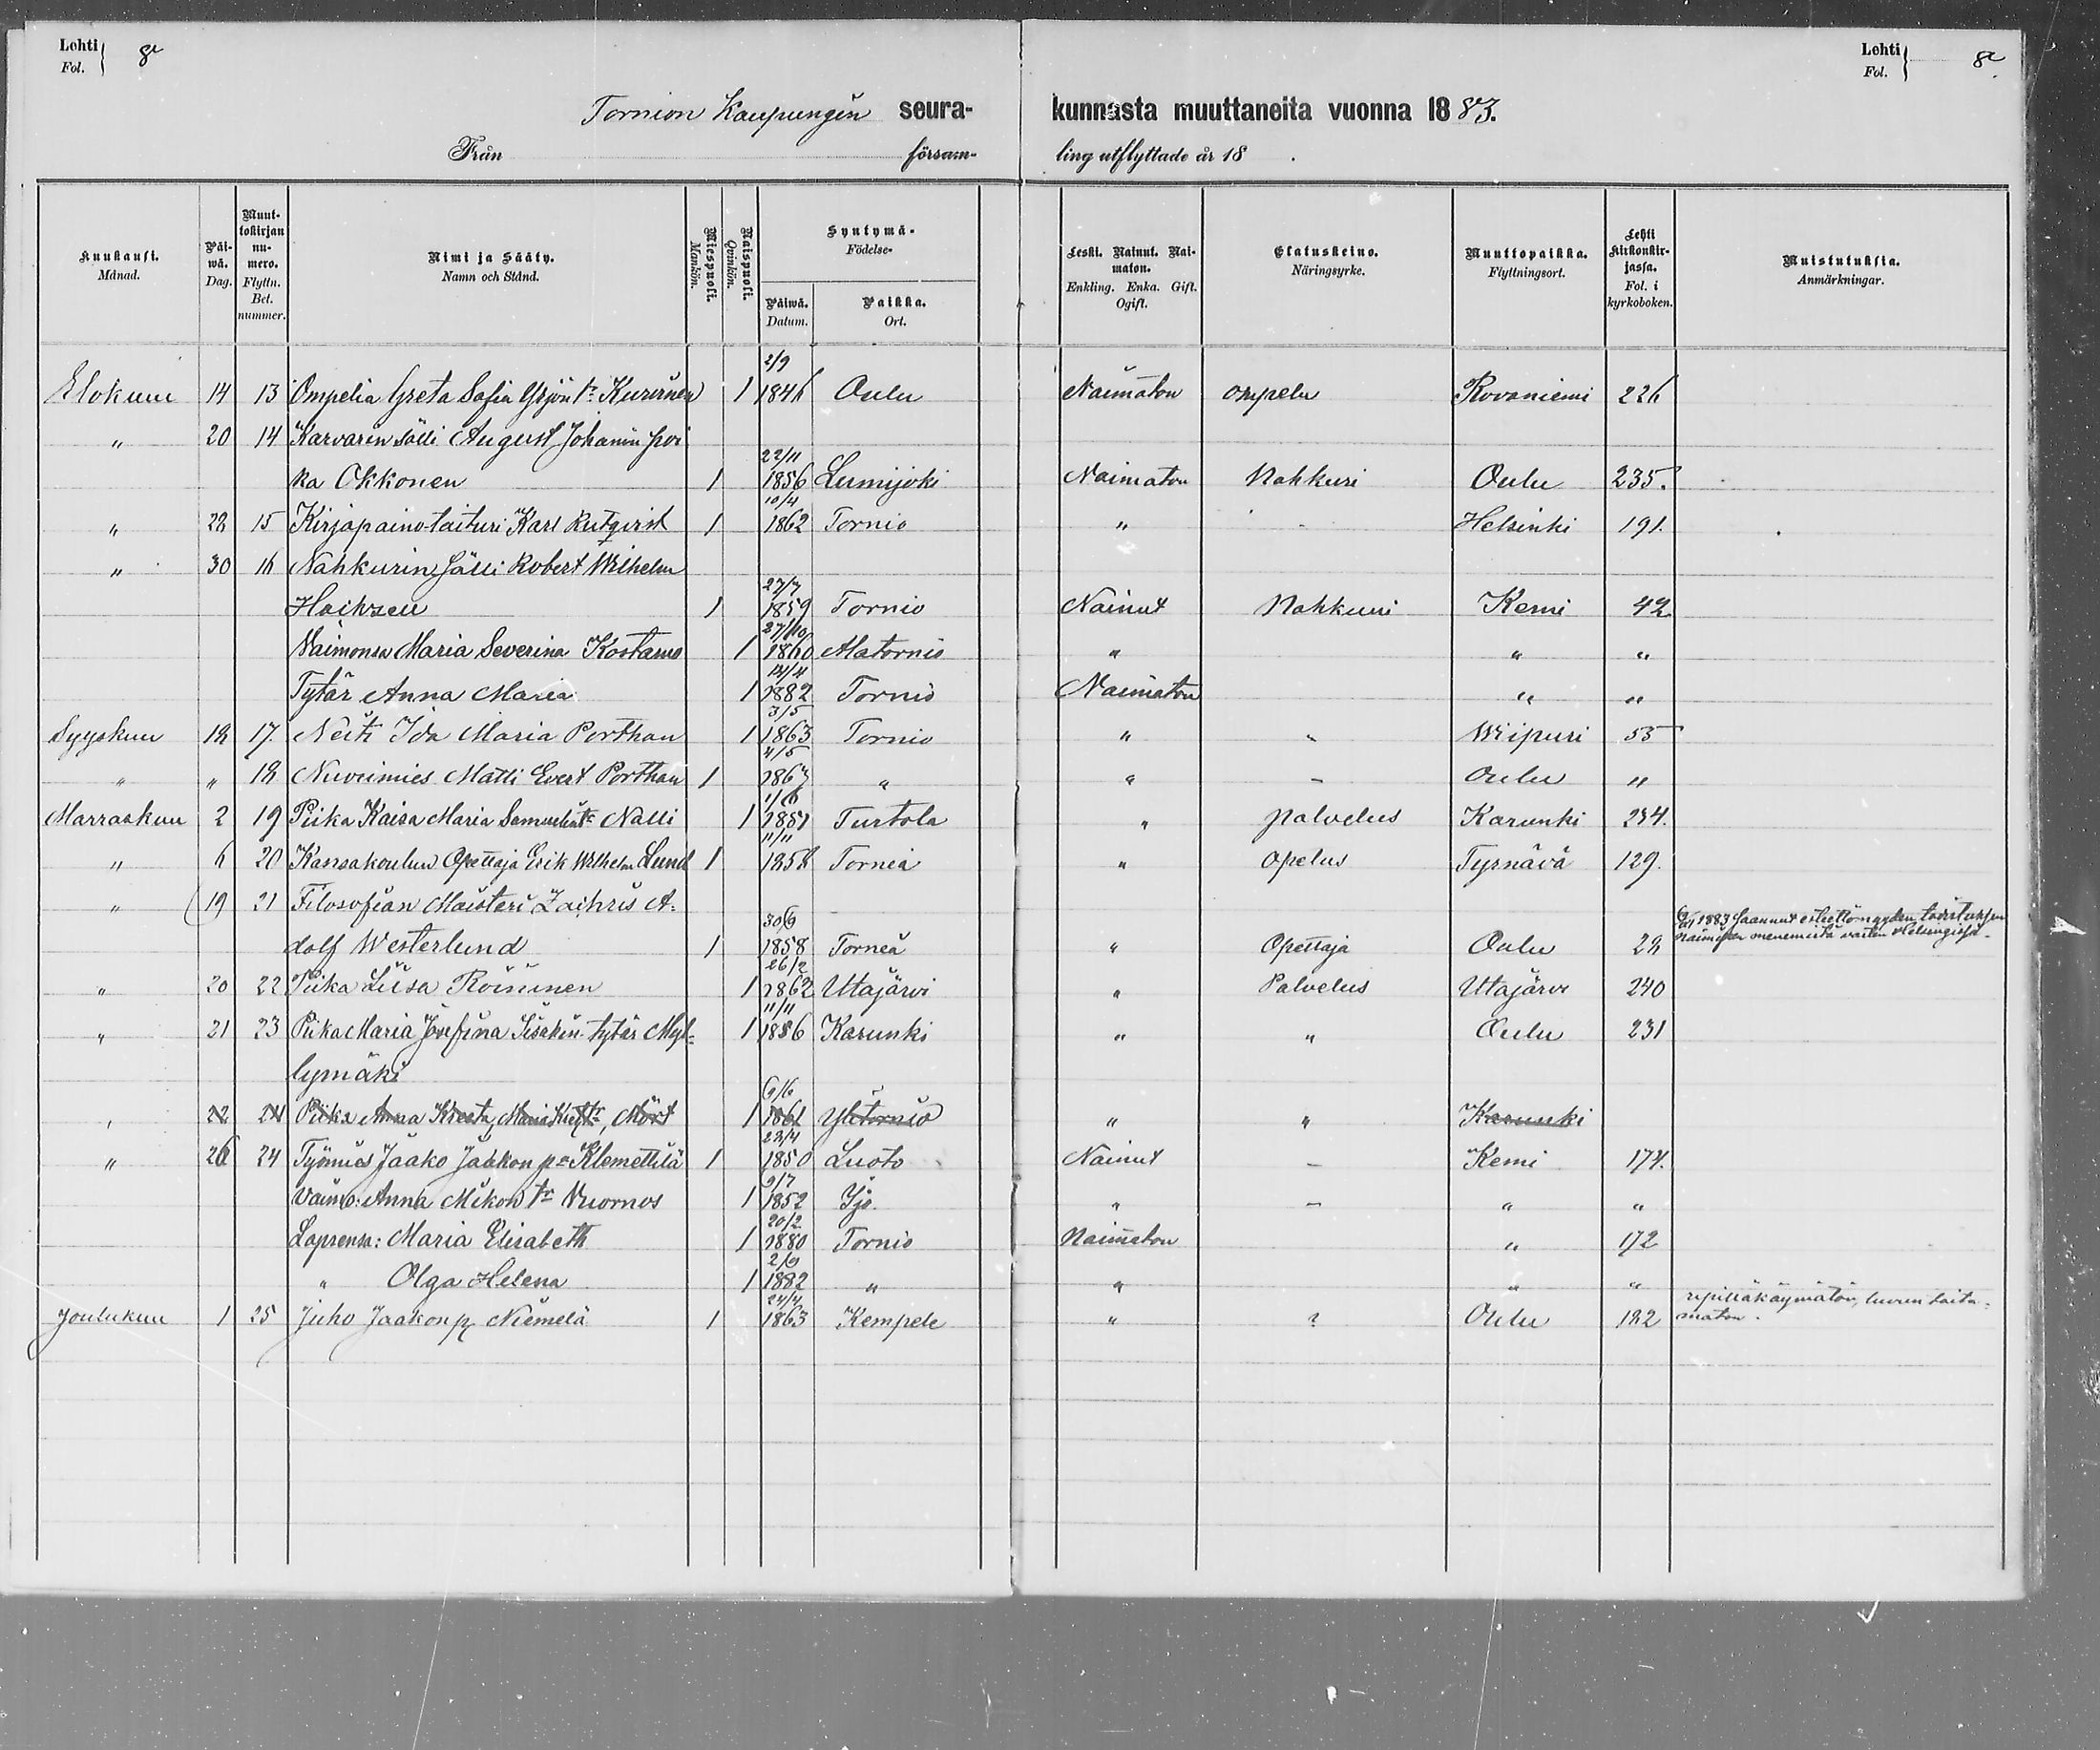 Lehti Fol. 8
Lehti Fol. 8
Tornion Kaupungin seurakunnasta muuttaneita vuonna 1883.
Från församling utflyttade år 18 .
Kuukausi. Månad.
Päiwä. Dag.
Muuttokirjan numero. Flyttn. Bet. nummer.
Nimi ja Sääty. Namn och Stånd.
Miespuoli. Mankön.
Naispuoli. Qvinkön.
Syntymä- Födelse-
Päiwä. Datum.
Paikka. Ort.
Leski. Nainut. Naimaton. Enkling. Enka. Gift. Ogift.
Elatuskeino. Näringsyrke.
Muuttopaikka. Flyttningsort.
Lehti kirkonkirjassa. Fol. i kyrkoboken.
Muistutuksia. Anmärkningar.
2/9
Elokuun 14 13 Ompelia Greta Sofia Yrjön tr 1 1846 Oulu Naimaton ompelu Rovaniemi 226
" 20 14 Karvarin sälli August Johanin poi
22/11
ka Okkonen 1 1856 Lumijoki Naimaton Nahkuri Oulu 235.
10/4
" 28 15 Kirjapaino-taituri Karl Rutqvist 1 1862 Tornio " - Helsinki 191.
" 30 16 Nahkurin Sälli Robert Wilhelm
27/7
1 1859 Tornio Nainut Nahkuri Kemi 42
27/10
Vaimonsa Maria Severina Kostamo 1 1860 Alatornio " " "
12/4
Tytär Anna Maria 1 1882 Tornio Naimaton " "
3/5
Syyskuu 18 17. Neiti Ida Maria Porthan 1 1863 Tornio " - Wiipuri 53
4/5
" " 18 Nuorimies Matti Evert Porthan 1 1867 " " - Oulu "
1/6
Marraskuu 2 19 Piika Kaisa Maria Samuelin tr Nalli 1 1851 Turtola " palvelus Karunki 234.
11/11
" 6 20 Kansakoulun Opettaja Erik Wilhelm Lund 1 1858 Torneå " opetus Tyrnävä 129.
" 19 21 Filosofian Maisteri Zachris A-
30/6
dolf Westerlund 1 1858 Torneå " Opettaja Oulu 28 1883 Saanut esteettömyyden todistuksen
naimiseen menemistä varten Helsingissä.
26/2
" 20 22 Piika Liisa Roininen 1 1862 Utajärvi " Palvelus Utajärvi 240
11/11
" 21 23 Piika Maria Josefina Iisakin tytär Myl- 1 1856 Karunki " " Oulu 231
lymäki
6/6
" 22 24 Piika Anna Kreeta Maria Mört 1 1861 Ylitornio " " Karunki
23/4
" 26 24 Työmies Jaako Jaakon p:a Klemettilä 1 1850 Luoto Nainut - Kemi 174.
9/7
Vaimo: Anna Mikon tr Vuornos 1 1852 Ijo. " - " "
20/2
Lapsensa: Maria Elisabeth 1 1880 Tornio Naimaton " 172
2/9
" Olga Helena 1 1882 " " " "
24/4
Joulukuu 1 25 Juho Jaakon p. Niemelä 1 1863 Kempele " ? Oulu 182 ripilläkäymätön, luvun taita-
maton.